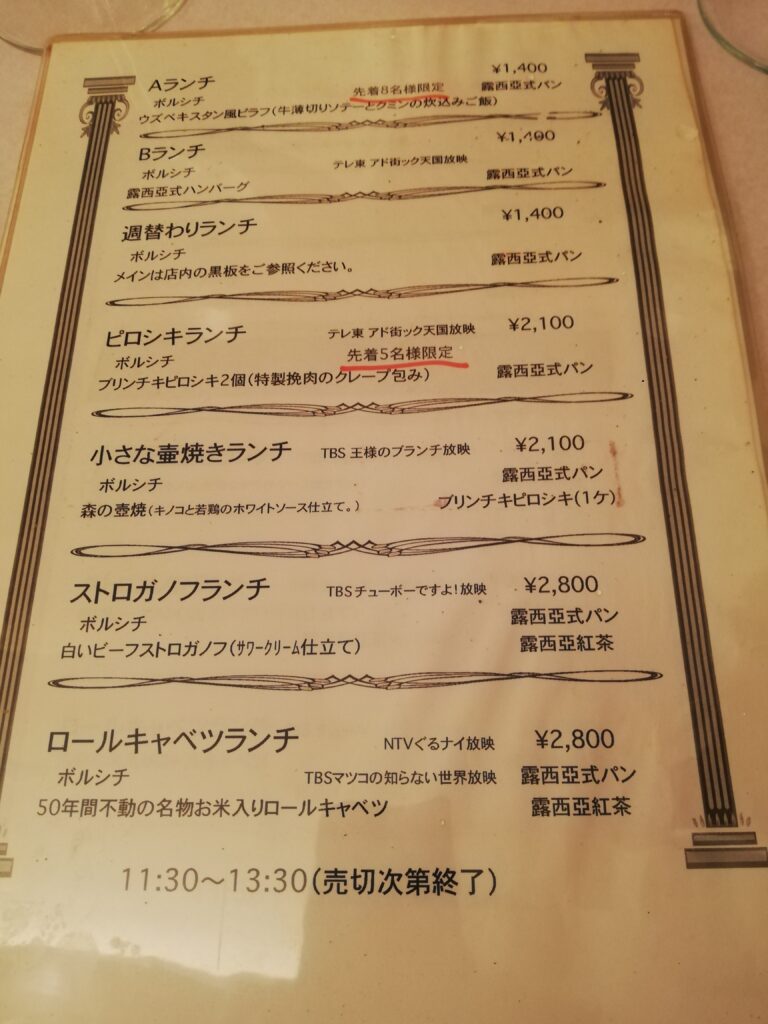 Aランチ ¥1,400
ボルシチ 先着8名様限定 露西亞式パン
ウズベキスタン風ピラフ(牛薄切りソテーとクミンの炊込みご飯)
Bランチ ¥1,400
ボルシチ テレ東 アド街ック天国放映 露西亞式パン
露西亞式ハンバーグ
週替わりランチ ¥1,400
ボルシチ 露西亞式パン
メインは店内の黒板をご参照ください。
ピロシキランチ テレ東 アド街ック天国放映 ¥2,100
ボルシチ 先着5名様限定
ブリンチキピロシキ2個(特製挽肉のクレープ包み) 露西亞式パン
小さな壷焼きランチ TBS 王様のブランチ放映 ¥2,100
ボルシチ 露西亞式パン
森の壺焼(キノコと若鶏のホワイトソース仕立て。) ブリンチキピロシキ(1ケ)
ストロガノフランチ TBSチューボーですよ!放映 ¥2,800
ボルシチ 露西亞式パン
白いビーフストロガノフ(ｻﾜｰｸﾘｰﾑ仕立て) 露西亞紅茶
ロールキャベツランチ NTVぐるナイ放映 ¥2,800
ボルシチ TBSマツコの知らない世界放映 露西亞式パン
50年間不動の名物お米入りロールキャベツ 露西亞紅茶
11:30～13:30(売切次第終了)